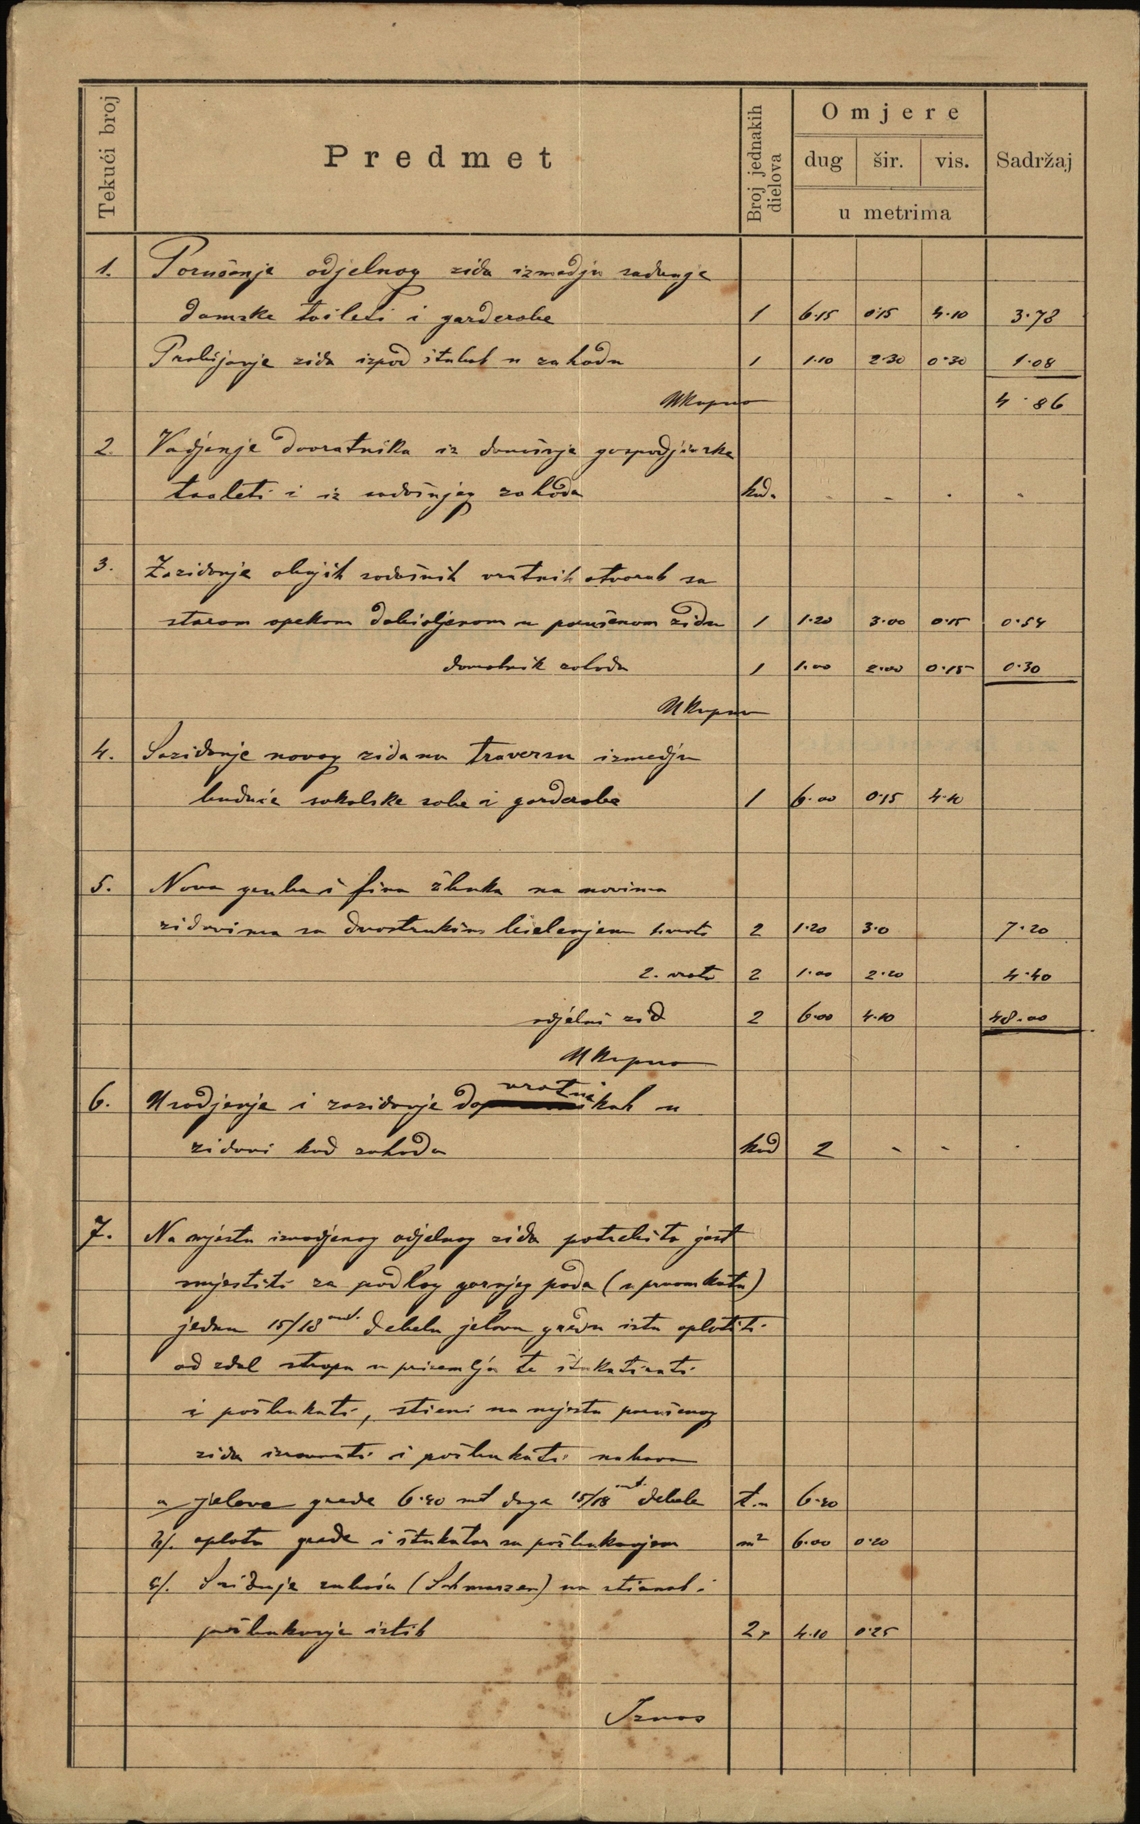 Tekući broj
Predmet
Broj jednakih dielova
Omjere
dug šir. vis. Sadržaj
u metrima
1. Porušenje odjelnog zida izmedju sadanje
damske toilete i garderobe 1 6·15 0·15 4·10 3·78
Probijanje zida izpod stubah u zahodu 1 1·10 2·30 0·30 1·08
Ukupno 4·86
2. Vadjenje dovratnika iz današnje gospodjinske
toalete i iz sadašnjeg zahoda kod. - - - -
3. Zazidanje obijih sadašnih vratnih otvorah sa
starom opekom dobivljenom u porušenom zidu 1 1·20 3·00 0·15 0·54
dovratnik zahoda 1 1·00 2·00 0·15 0·30
Ukupno
4. Sazidanje novog zida na traversu izmedju
buduće sokolske sobe i garderobe 1 6·00 0·15 4·10
5. Nova gruba i fina žbuka na novima
zidovima sa dvostrukim bielenjem 1. vrata 2 1·20 3·0 7·20
2. vrata 2 1·00 2·20 4·40
odjelni zid 2 6·00 4·10 48·00
Ukupno
vratni
6. Uradjenje i zazidanje do ikah u
zidovi kod zahoda kod 2 - - -
7. Na mjestu izvadjenog odjelnog zida potrebito jest
smjestiti za podlog gornjeg poda (u prvom katu)
jednu 15/18 cmt. debelu jelovu gredu istu oplatiti
od zdol stropa u prizemlju te štukatirati
i požbukati, stieni na mjestu porušenog
zida izravnati i požbukati nabava
a jelove grede 6·20 mt duga 15/18 cmt. debele t.m 6·20
b/. oplata grede i štukator sa požbukanjem m² 6·00 0·20
c/. Sridanje zuboća (Schmarzen) na stienah i
požbukanje istih 2x 4·10 0·25
Iznos